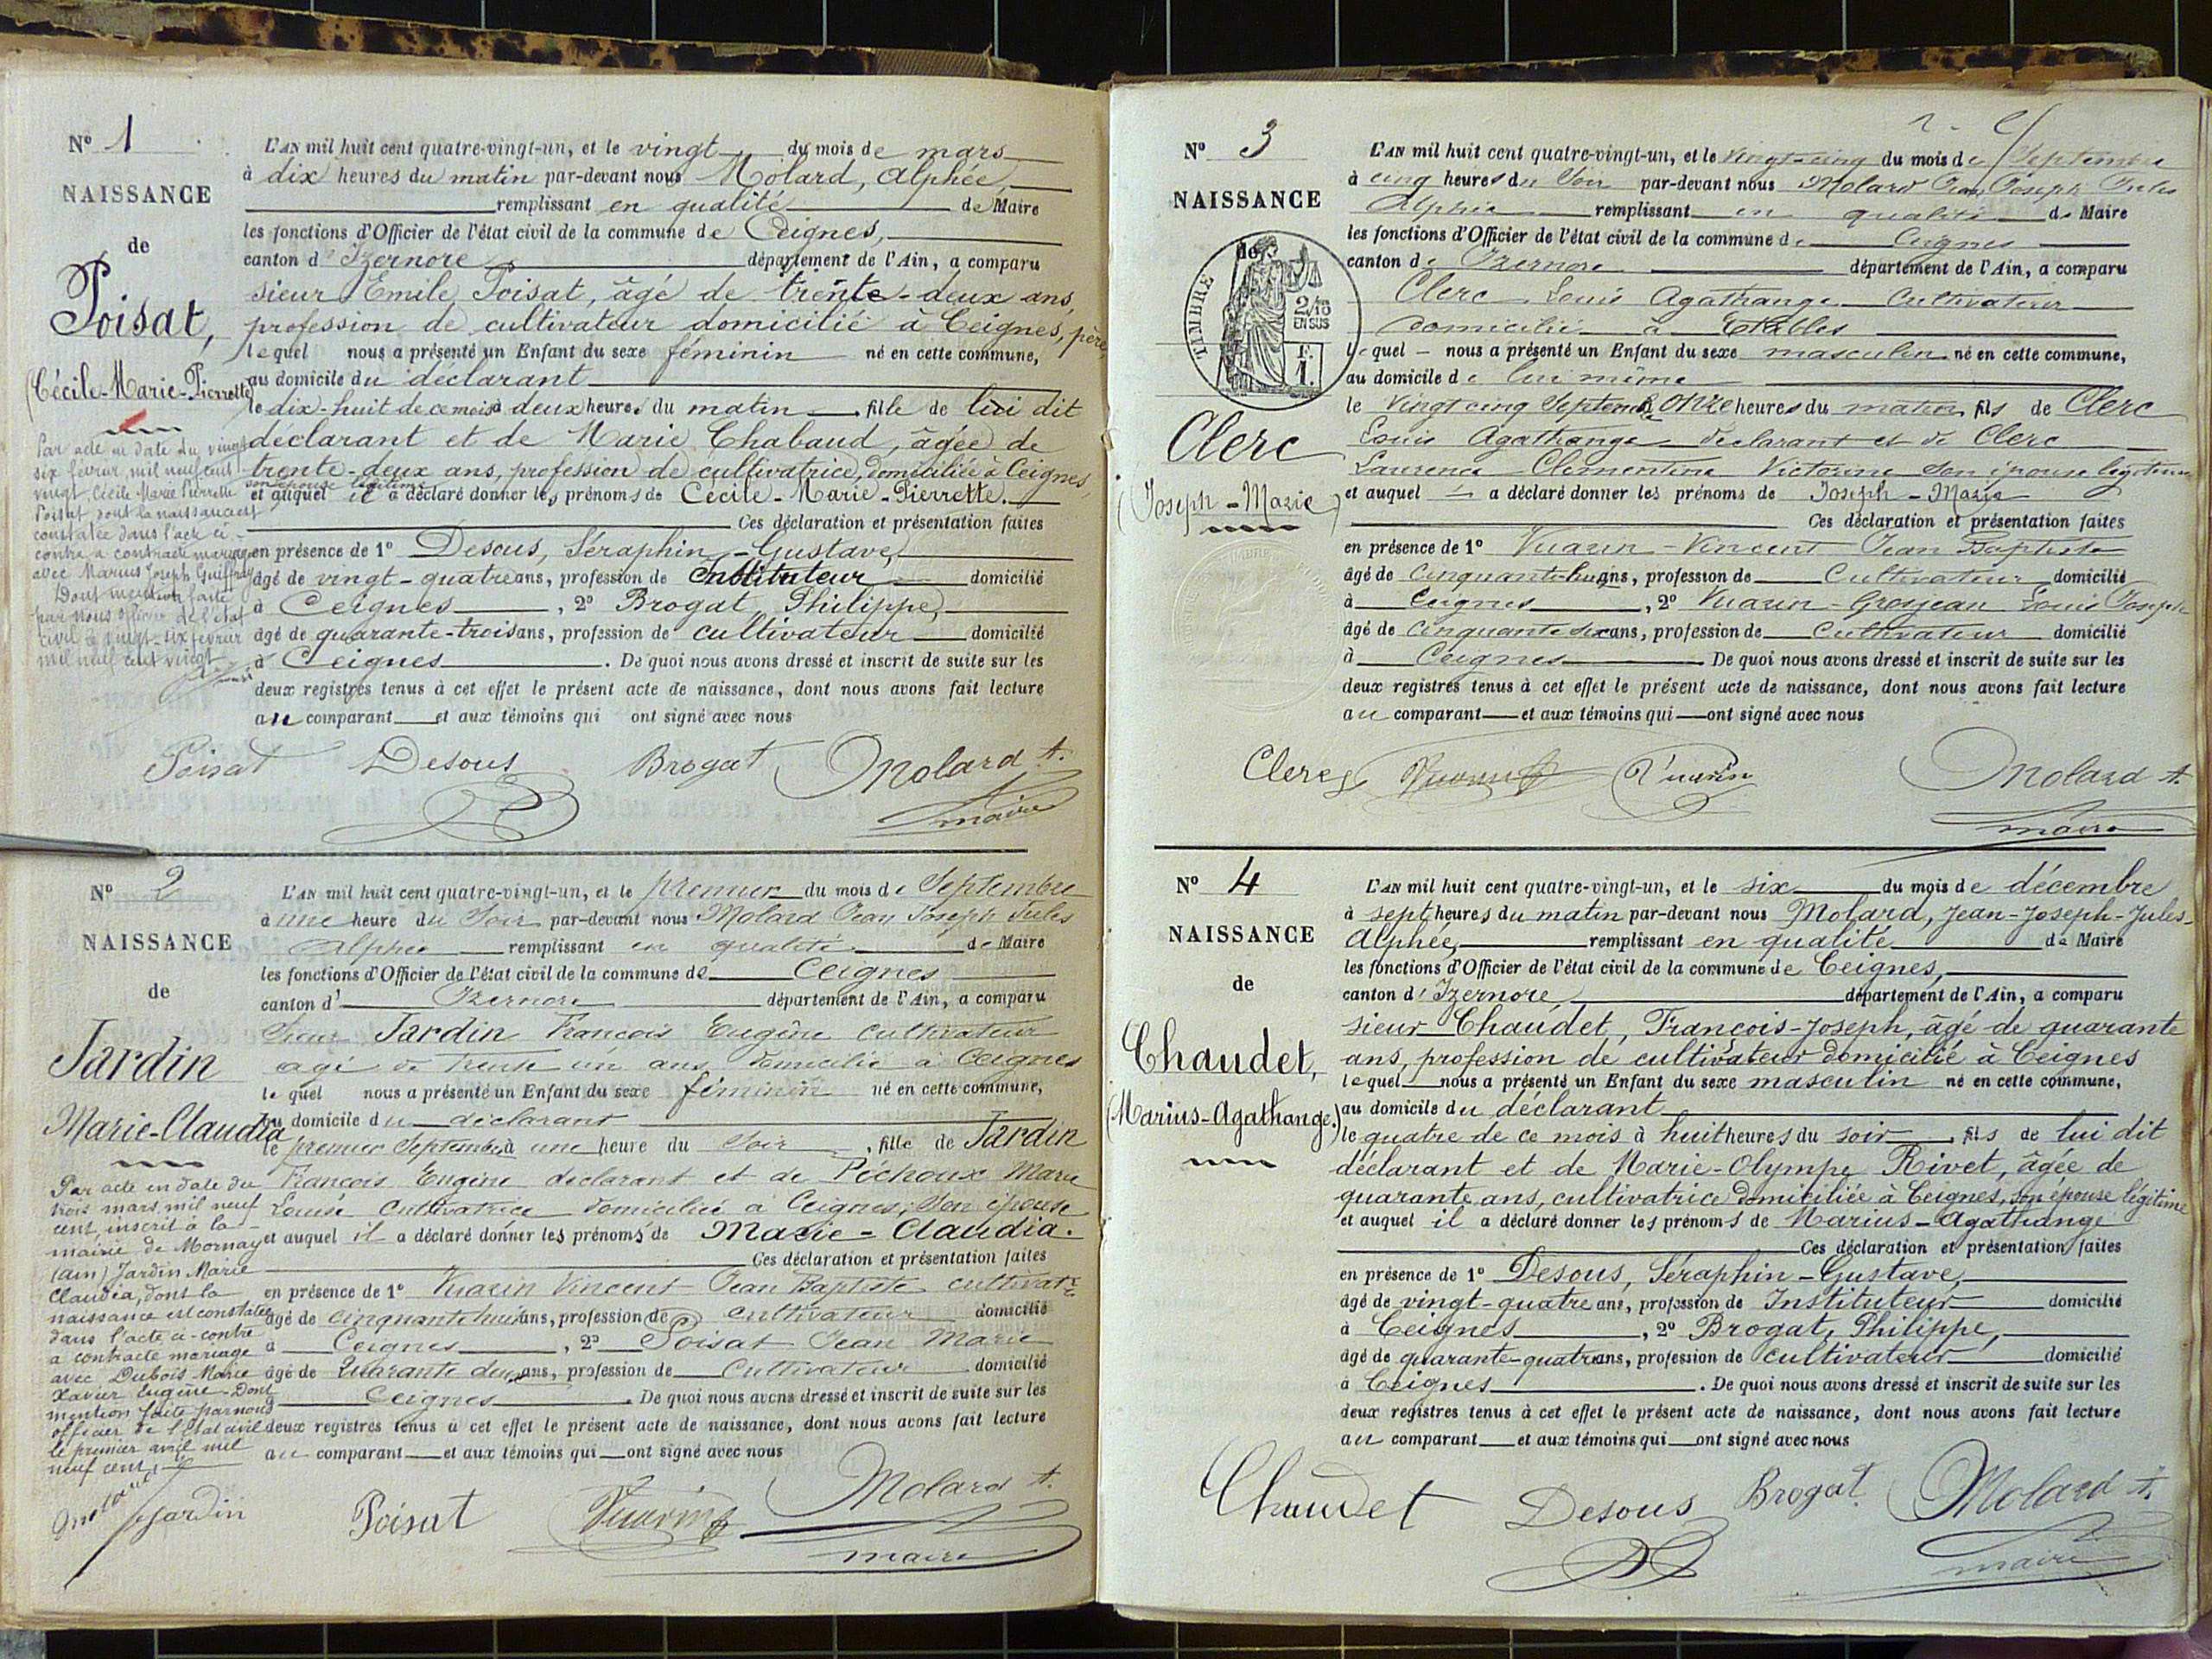 N° 1
NAISSANCE
de
Poisat,
(Cécile-Marie-Pierrette
Par acte en date du vingt
six février mil neuf cent
vingt, Cécile Marie Pierrette
Poisat dont la naissance est
constatée dans l'acte ci-
contre a contracté mariage
avec Marius Joseph Guiffray
Dont mention faite
par nous officier de l'état
civil le vingt-six février
mil neuf cent vingt
L'AN mil huit cent quatre-vingt-un, et le vingt du mois de mars
à dix heures du matin par-devant nous Molard, Alphée,
remplissant en qualité de Maire
les fonctions d'Officier de l'état civil de la commune de Ceignes,
canton d'Izernore département de l'Ain, a comparu
sieur Emile Poisat, âgé de trente-deux ans,
profession de cultivateur domicilié à Ceignes, père,
lequel nous a présenté un Enfant du sexe féminin né en cette commune,
au domicile du déclarant
le dix-huit de ce mois à deux heures du matin fille de lui dit
déclarant et de Marie Chabaud, âgée de
trente-deux ans, profession de cultivatrice, domiciliée à Ceignes,
son épouse légitime
et auquel il a déclaré donner les prénoms de Cécile-Marie-Pierrette.
Ces déclaration et présentation faites
en présence de 1° Desous, Séraphin-Gustave,
âgé de vingt-quatre ans, profession de Instituteur domicilié
à Ceignes, 2° Brogat, Philippe,
âgé de quarante-trois ans, profession de cultivateur domicilié
à Ceignes. De quoi nous avons dressé et inscrit de suite sur les
deux registres tenus à cet effet le présent acte de naissance, dont nous avons fait lecture
au comparant et aux témoins qui ont signé avec nous
Poisat Desous Brogat Molard A.
maire
N° 2
NAISSANCE
de
Jardin
Marie-Claudia
Par acte en date du
trois mars mil neuf
cent, inscrit à la
mairie de Mornay
(Ain) Jardin Marie
Claudia, dont la
naissance est constatée
dans l'acte ci-contre
a contracté mariage
avec Dubois Marie
Xavier Eugène. Dont
mention faite par nous
officier de l'état civil
le premier avril mil
neuf cent.
Molard
L'AN mil huit cent quatre-vingt-un, et le premier du mois de Septembre
à une heure du Soir par-devant nous Molard Jean Joseph Jules
Alphée remplissant en qualité de Maire
les fonctions d'Officier de l'état civil de la commune de Ceignes
canton d' Izernore département de l'Ain, a comparu
Sieur Jardin François Eugène cultivateur
agé de trente un ans domicilié à Ceignes
lequel nous a présenté un Enfant du sexe féminin né en cette commune,
au domicile du déclarant
le premier Septembre à une heure du Soir, fille de Jardin
François Eugène declarant et de Péchoux Marie
Louise cultivatrice domiciliée à Ceignes, Son épouse
et auquel il a déclaré donner les prénoms de Marie-Claudia.
Ces déclaration et présentation faites
en présence de 1° Vuarin Vincent Jean Baptiste cultivatr
âgé de cinquante huit ans, profession de cultivateur domicilié
à Ceignes, 2° Poisat Jean Marie
âgé de Quarante deux ans, profession de cultivateur domicilié
Ceignes. De quoi nous avons dressé et inscrit de suite sur les
deux registres tenus à cet effet le présent acte de naissance, dont nous avons fait lecture
au comparant et aux témoins qui ont signé avec nous
Jardin Poisat Vuarin Molard A.
maire
N° 3
NAISSANCE
de
TIMBRE
2/10
EN SUS
F.
1.
Clerc
(Joseph-Marie)
L'AN mil huit cent quatre-vingt-un, et le vingt-cinq du mois de Septembre
à cinq heures du Soir par-devant nous Molard Jean Joseph Jules
Alphée remplissant en qualité de Maire
les fonctions d'Officier de l'état civil de la commune de Ceignes
canton de Izernore département de l'Ain, a comparu
Clerc Louis Agathange Cultivateur
domicilié à Etables
lequel nous a présenté un Enfant du sexe masculin né en cette commune,
au domicile de lui même
le vingt cinq Septembre onze heures du matin fils de Clerc
Louis Agathange declarant et de Clerc
Laurence Clementine Victorine Son épouse légitime
et auquel a déclaré donner les prénoms de Joseph-Marie
Ces déclaration et présentation faites
en présence de 1° Vuarin-Vincent Jean Baptiste
âgé de cinquante huit ans, profession de Cultivateur domicilié
à Ceignes, 2° Vuarin-Grosjean Louis Joseph
âgé de cinquante ans, profession de Cultivateur domicilié
à Ceignes. De quoi nous avons dressé et inscrit de suite sur les
deux registres tenus à cet effet le présent acte de naissance, dont nous avons fait lecture
au comparant et aux témoins qui ont signé avec nous
Clerc Vuarin Vuarin Molard A.
maire
N° 4
NAISSANCE
de
Chaudet,
(Marius-Agathange.)
L'AN mil huit cent quatre-vingt-un, et le six du mois de décembre
à sept heures du matin par-devant nous Molard, Jean-Joseph-Jules-
Alphée, remplissant en qualité de Maire
les fonctions d'Officier de l'état civil de la commune de Ceignes,
canton d'Izernore département de l'Ain, a comparu
sieur Chaudet, François-Joseph, âgé de quarante
ans, profession de cultivateur domicilié à Ceignes
lequel nous a présenté un Enfant du sexe masculin né en cette commune,
au domicile du déclarant
le quatre de ce mois à huit heures du soir, fils de lui dit
déclarant et de Marie-Olympe Rivet, âgée de
quarante ans, cultivatrice domiciliée à Ceignes, son épouse légitime
et auquel il a déclaré donner les prénoms de Marius-Agathange
Ces déclaration et présentation faites
en présence de 1° Desous, Séraphin-Gustave,
âgé de vingt-quatre ans, profession de Instituteur domicilié
à Ceignes, 2° Brogat, Philippe,
âgé de quarante-quatre ans, profession de cultivateur domicilié
à Ceignes. De quoi nous avons dressé et inscrit de suite sur les
deux registres tenus à cet effet le présent acte de naissance, dont nous avons fait lecture
au comparant et aux témoins qui ont signé avec nous
Chaudet Desous Brogat Molard A.
maire